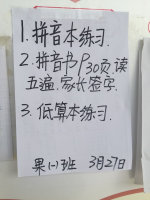 1.拼音本练习.
2.拼音书P30页读
五遍.家长签字.
3.低算本练习.
果(一)班 3月27日